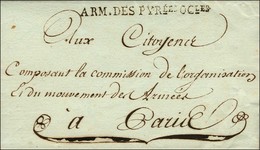 ARM. DES PYRÉES OCLES
Aux Citoyens
Composant la commission de l'organisation
Et du mouvement des Armées
a Paris